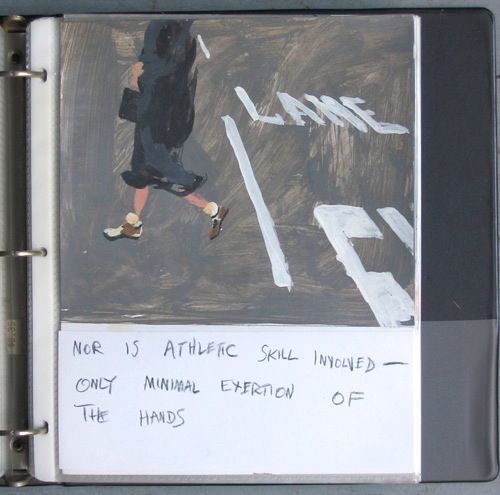 LAME
NOR IS ATHLETIC SKILL INVOLVED —
ONLY MINIMAL EXERTION OF
THE HANDS